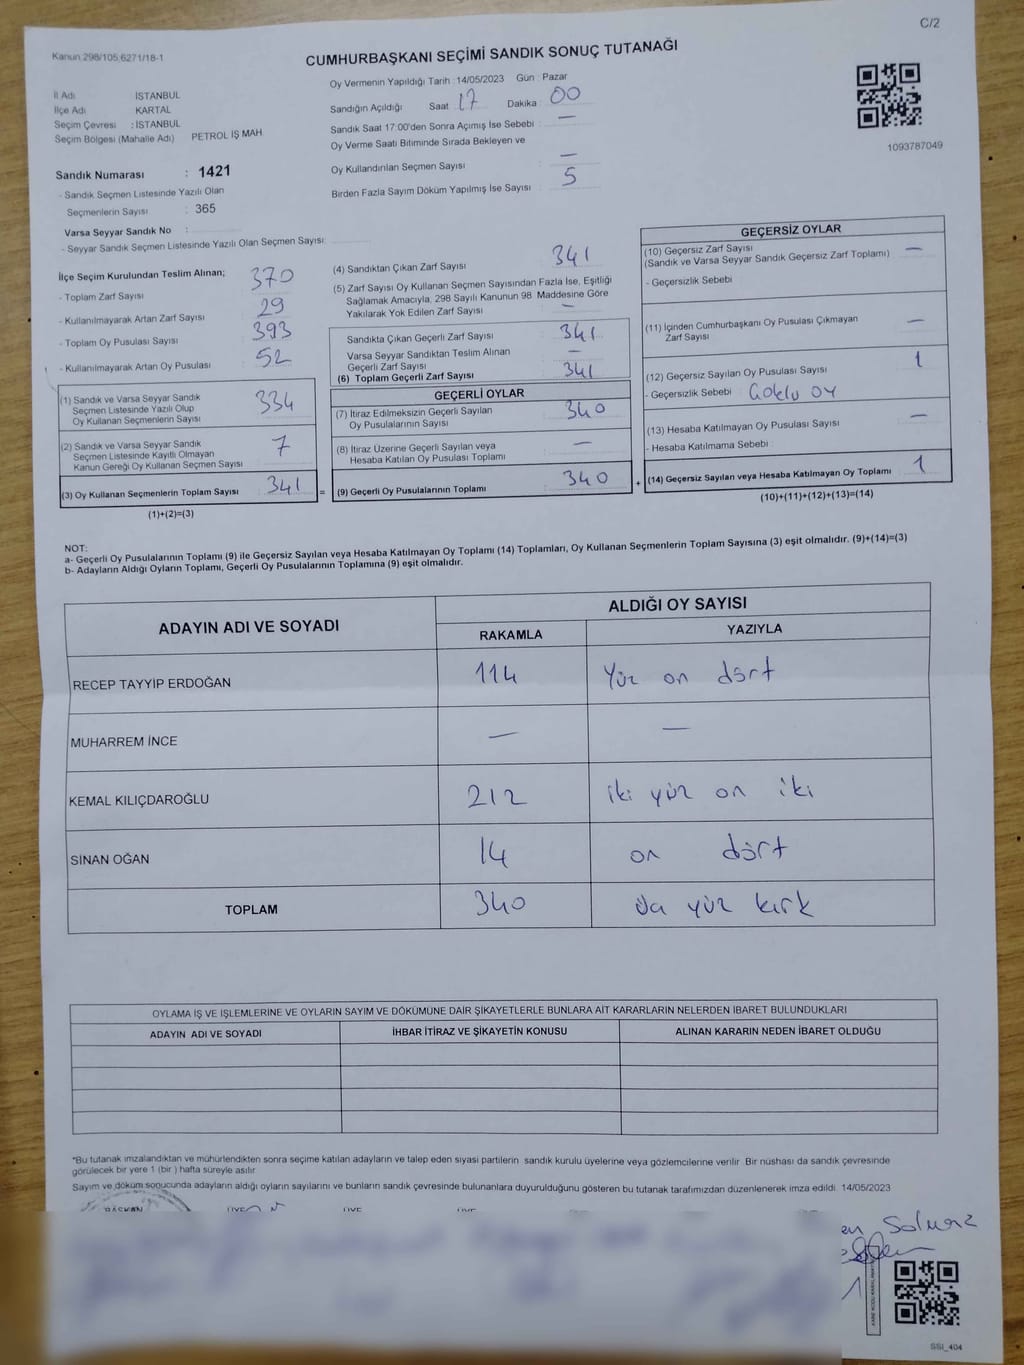 C/2
Kanun 298/105,6271/18-1
CUMHURBAŞKANI SEÇİMİ SANDIK SONUÇ TUTANAĞI
Oy Vermenin Yapıldığı Tarih : 14/05/2023 Gün : Pazar
İl Adı İSTANBUL
İlçe Adı KARTAL
Seçim Çevresi : İSTANBUL
Seçim Bölgesi (Mahalle Adı) PETROL İŞ MAH.
Sandığın Açıldığı Saat 17 Dakika : 00
Sandık Saat 17:00'den Sonra Açımış İse Sebebi : —
Oy Verme Saati Bitiminde Sırada Bekleyen ve
Oy Kullandırılan Seçmen Sayısı : —
Birden Fazla Sayım Döküm Yapılmış İse Sayısı : 5
1093787049
Sandık Numarası : 1421
- Sandık Seçmen Listesinde Yazılı Olan
Seçmenlerin Sayısı : 365
Varsa Seyyar Sandık No :
- Seyyar Sandık Seçmen Listesinde Yazılı Olan Seçmen Sayısı:
İlçe Seçim Kurulundan Teslim Alınan;
- Toplam Zarf Sayısı 370
- Kullanılmayarak Artan Zarf Sayısı 29
- Toplam Oy Pusulası Sayısı 393
- Kullanılmayarak Artan Oy Pusulası 52
(1) Sandık ve Varsa Seyyar Sandık
Seçmen Listesinde Yazılı Olup
Oy Kullanan Seçmenlerin Sayısı 334
(2) Sandık ve Varsa Seyyar Sandık
Seçmen Listesinde Kayıtlı Olmayan
Kanun Gereği Oy Kullanan Seçmen Sayısı 7
(3) Oy Kullanan Seçmenlerin Toplam Sayısı 341 =
(1)+(2)=(3)
(4) Sandıktan Çıkan Zarf Sayısı 341
(5) Zarf Sayısı Oy Kullanan Seçmen Sayısından Fazla İse, Eşitliği
Sağlamak Amacıyla, 298 Sayılı Kanunun 98 Maddesine Göre
Yakılarak Yok Edilen Zarf Sayısı : —
Sandıkta Çıkan Geçerli Zarf Sayısı 341
Varsa Seyyar Sandıktan Teslim Alınan
Geçerli Zarf Sayısı —
(6) Toplam Geçerli Zarf Sayısı 341
GEÇERLİ OYLAR
(7) İtiraz Edilmeksizin Geçerli Sayılan
Oy Pusulalarının Sayısı 340
(8) İtiraz Üzerine Geçerli Sayılan veya
Hesaba Katılan Oy Pusulası Toplamı —
(9) Geçerli Oy Pusulalarının Toplamı 340 +
GEÇERSİZ OYLAR
(10) Geçersiz Zarf Sayısı
(Sandık ve Varsa Seyyar Sandık Geçersiz Zarf Toplamı) —
- Geçersizlik Sebebi
(11) İçinden Cumhurbaşkanı Oy Pusulası Çıkmayan
Zarf Sayısı —
(12) Geçersiz Sayılan Oy Pusulası Sayısı 1
- Geçersizlik Sebebi Çoklu oy
(13) Hesaba Katılmayan Oy Pusulası Sayısı —
- Hesaba Katılmama Sebebi :
(14) Geçersiz Sayılan veya Hesaba Katılmayan Oy Toplamı 1
(10)+(11)+(12)+(13)=(14)
NOT:
a- Geçerli Oy Pusulalarının Toplamı (9) ile Geçersiz Sayılan veya Hesaba Katılmayan Oy Toplamı (14) Toplamları, Oy Kullanan Seçmenlerin Toplam Sayısına (3) eşit olmalıdır. (9)+(14)=(3)
b- Adayların Aldığı Oyların Toplamı, Geçerli Oy Pusulalarının Toplamına (9) eşit olmalıdır.
ADAYIN ADI VE SOYADI
ALDIĞI OY SAYISI
RAKAMLA YAZIYLA
RECEP TAYYİP ERDOĞAN 114 Yüz on dört
MUHARREM İNCE — —
KEMAL KILIÇDAROĞLU 212 iki yüz on iki
SİNAN OĞAN 14 on dört
TOPLAM 340 yüz kırk
OYLAMA İŞ VE İŞLEMLERİNE VE OYLARIN SAYIM VE DÖKÜMÜNE DAİR ŞİKAYETLERLE BUNLARA AİT KARARLARIN NELERDEN İBARET BULUNDUKLARI
ADAYIN ADI VE SOYADI İHBAR İTİRAZ VE ŞİKAYETİN KONUSU ALINAN KARARIN NEDEN İBARET OLDUĞU
*Bu tutanak imzalandıktan ve mühürlendikten sonra seçime katılan adayların ve talep eden siyasi partilerin sandık kurulu üyelerine veya gözlemcilerine verilir. Bir nüshası da sandık çevresinde
görülecek bir yere 1 (bir ) hafta süreyle asılır
Sayım ve döküm sonucunda adayların aldığı oyların sayılarını ve bunların sandık çevresinde bulunanlara duyurulduğunu gösteren bu tutanak tarafımızdan düzenlenerek imza edildi. 14/05/2023
BAŞKAN ÜYE ÜYE ÜYE
Solmaz
SSI_404